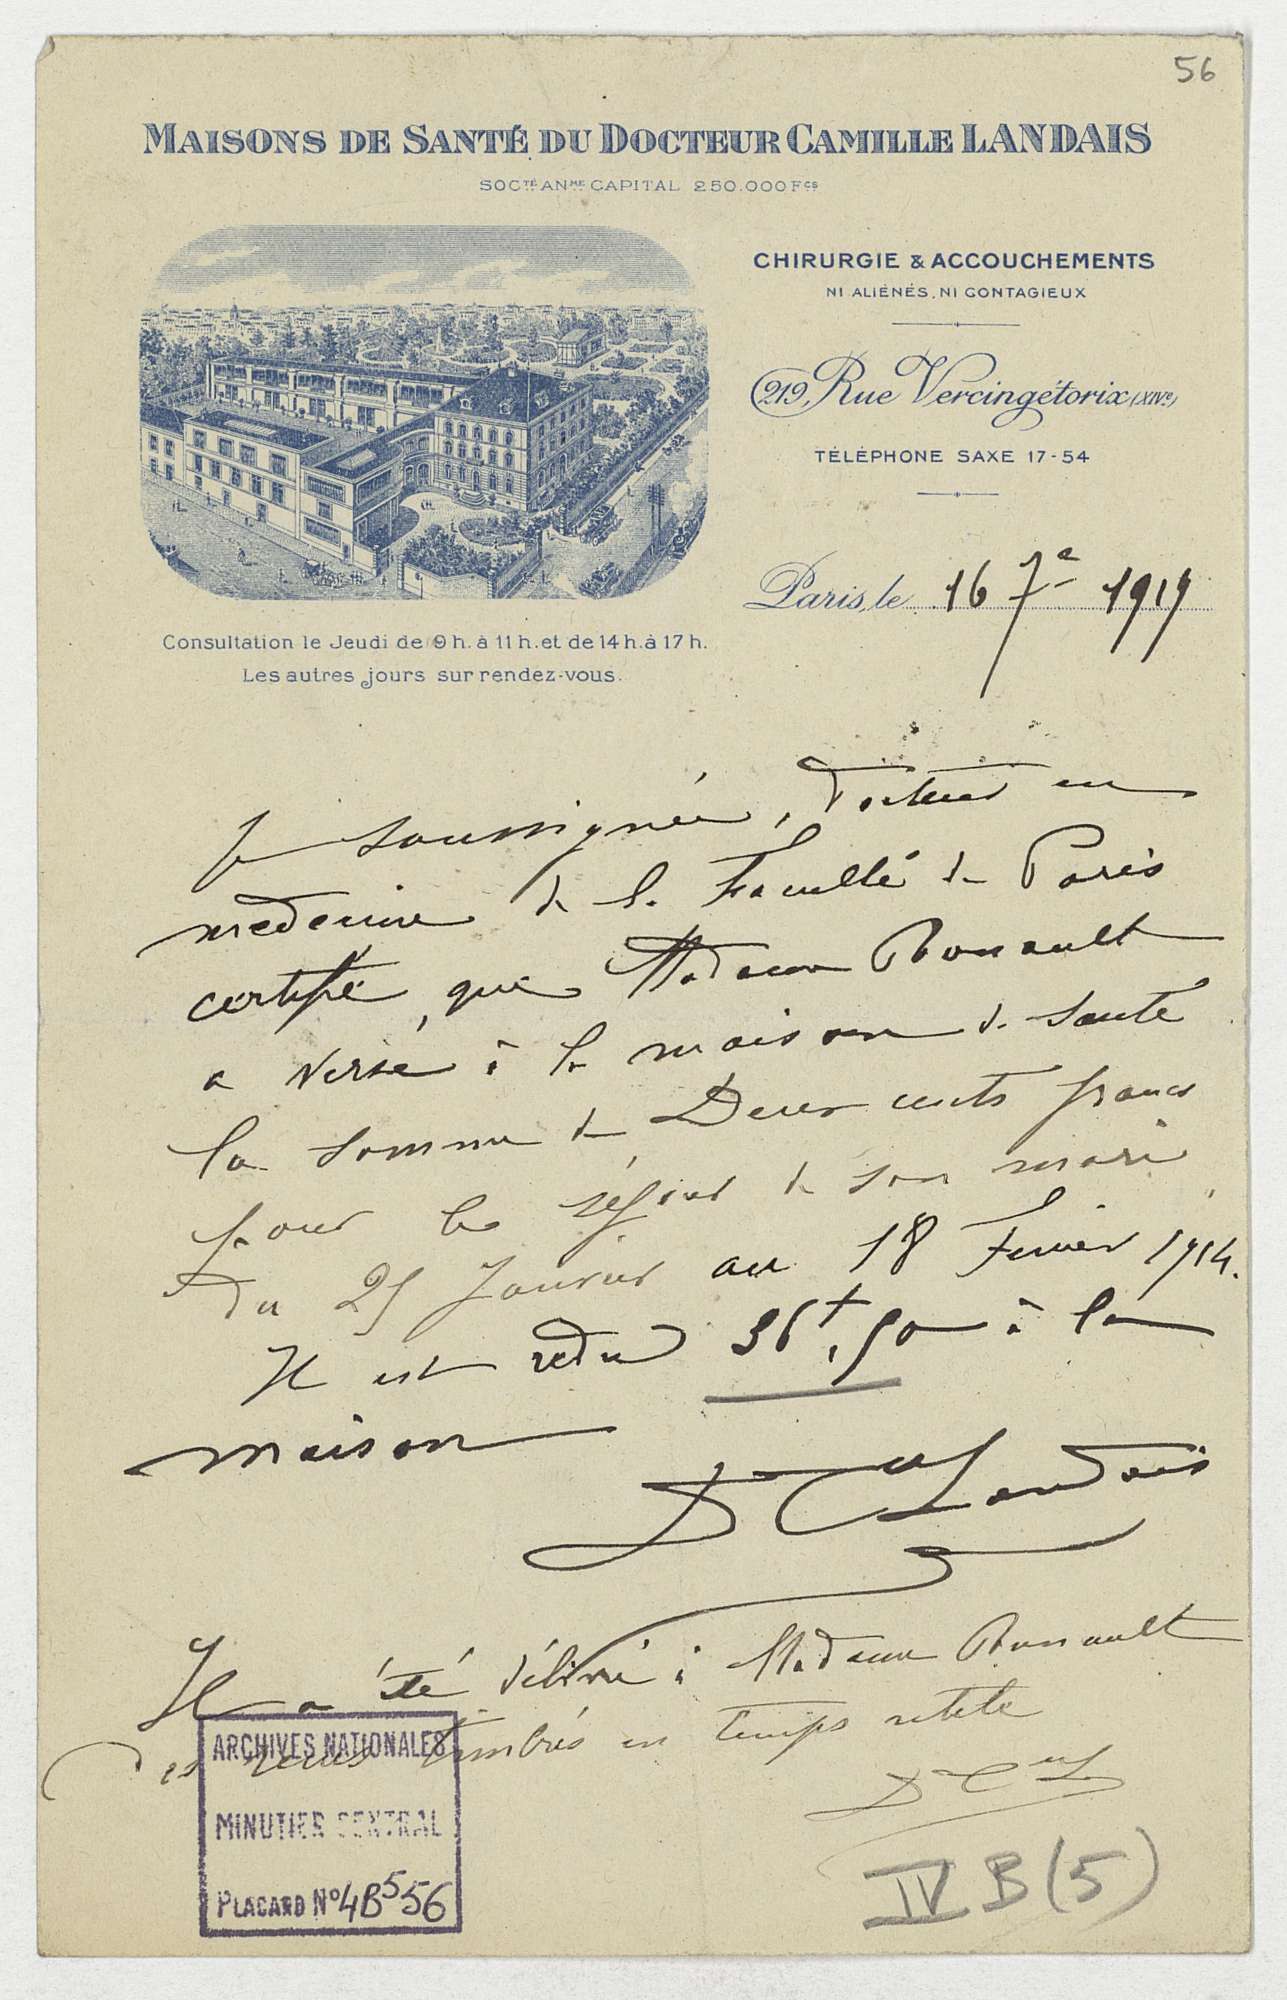 56
MAISONS DE SANTÉ DU DOCTEUR CAMILLE LANDAIS
SOCTÉ ANME CAPITAL 250.000 FCS
CHIRURGIE & ACCOUCHEMENTS
NI ALIÉNÉS, NI CONTAGIEUX
219, Rue Vercingétorix (XIVe)
TÉLÉPHONE SAXE 17-54
Paris, le 16 7e 1919
Consultation le Jeudi de 9 h. à 11 h. et de 14 h. à 17 h.
Les autres jours sur rendez-vous.
Je soussignée, Docteur en
medecine de la Faculté de Paris
certifie que Madame Ronault
a versé à la maison de santé
la somme de Deux cents francs
pour le séjour de son mari
Du 25 Janvier au 18 Fevrier 1914.
Il est redu 36f,50 à la
maison
Dr Clle Landais
Il a été délivré à Madame Ronault
des recus timbrés en temps utile
Dr Clle L
ARCHIVES NATIONALES
MINUTIER CENTRAL
PLACARD No 4B5 56
IV B (5)